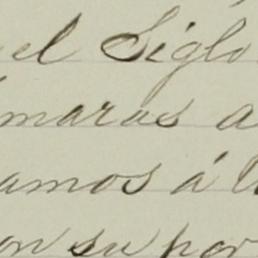 el Siglo
maras a
amos á l
on su por